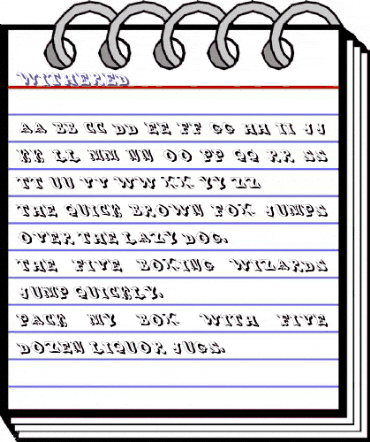 WITHERED
AA BB CC DD EE FF GG HH II JJ
KK LL MM NN OO PP QQ RR SS
TT UU VV WW XX YY ZZ
THE QUICK BROWN FOX JUMPS
OVER THE LAZY DOG.
THE FIVE BOXING WIZARDS
JUMP QUICKLY.
PACK MY BOX WITH FIVE
DOZEN LIQUOR JUGS.